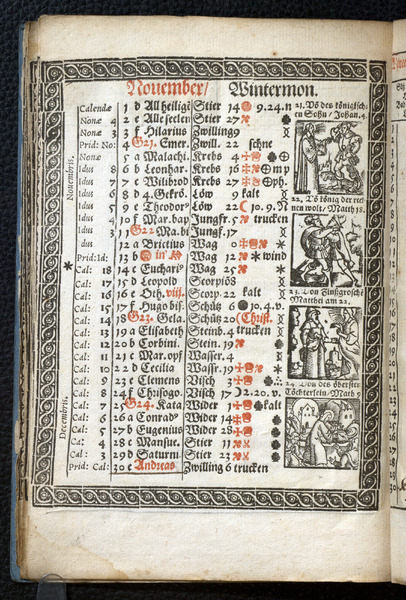 November/ Wintermon.
Calendæ 1 d All heilige Stier 14 9.24.n
Nonæ 4 2 e Alle seelen Stier 27
Nonæ 3 3 f Hilarius Zwilling 9
Prid: No: 4 G21. Emer. Zwill. 22 schne
Nonæ 5 a Malachi. Krebs 4
Idus 8 6 b Leonhar. Krebs 16 mp
Idus 7 7 c Wilibrod Krebs 27 ph.
Idus 6 8 d 4. Gekrö. Löw 9 kalt
Idus 5 9 e Theodor Löw 22 10.9.N
Idus 4 10 f Mar. bap Jungf. 5 trucken
Idus 3 11 G22 Ma. bi Jungf. 17
Idus 12 a Brictius Wag 0
Idus 13 b Wag 12 wind
Cal: 18 14 c Euchari Wag 25
Cal: 17 15 d Leopold Scorpio 8
Cal: 16 16 e Oth. Scorp. 22 kalt
Cal: 15 17 f Hugo bis. Schütz 6 10.4.v.
Cal: 14 18 G23. Gela. Schütz 20 Christ.
Cal: 13 19 a Elisabeth Steinb. 4 trucken
Cal: 12 20 b Corbini. Stein. 19
Cal: 11 21 c Mar. opf Wasser. 4
Cal: 10 22 d Cecilia Wasser. 19
Cal: 9 23 e Clemens Visch 3
Cal: 8 24 f Chrisogo. Visch 17 2.20.v.
Cal: 7 25 G24. Kata Wider 1 kalt
Cal: 6 26 a Conrad Wider 14
Cal: 5 27 b Eugenius Wider 28
Cal: 4 28 c Mansue. Stier 11
Cal: 3 29 d Saturni Stier 23
Prid: Cal: 30 e Andreas Zwilling 6 trucken
Novembris.
Decembris.
21. Võ des königsch-
en Sohn / Johan. 4.
22. Võ könig der rech-
nen wolt / Matth 18.
23. Von Zinßgrosche
Matthei am 22.
24. Von des obersten
Töchterlein / Math 9